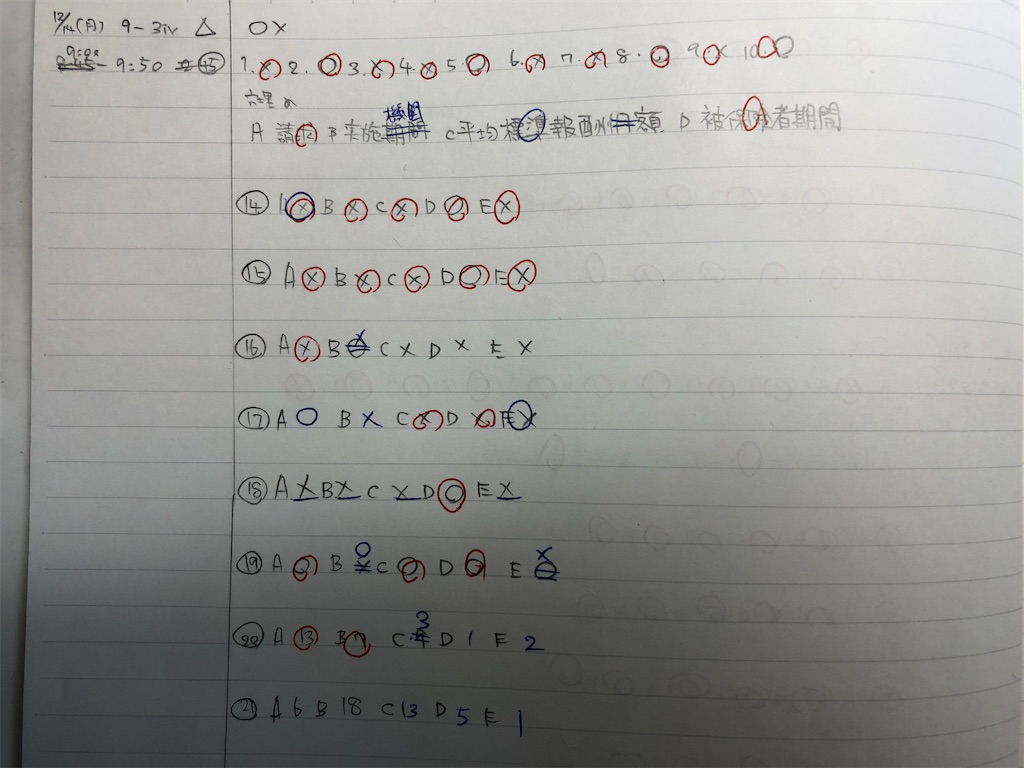 12/14(月) 9-3iv △ ○×
9:00 9:50 ⑮ 1.× 2.○ 3.× 4.× 5.○ 6.× 7.× 8.○ 9× 10○
A 請求 B 実施機関 C平均標準報酬額 D 被保険者期間
⑭ A× B × C × D ○ E×
⑮ A × B × C × D ○ E×
⑯ A × B × C × D × E ×
⑰ A ○ B × C × D × E×
⑱ A × B × C × D ○ E ×
⑲ A ○ B ○ C ○ D ○ E ×
⑳ A 13 B 7 C 3 D 1 E 2
㉑ A 6 B 18 C 13 D 5 E 1